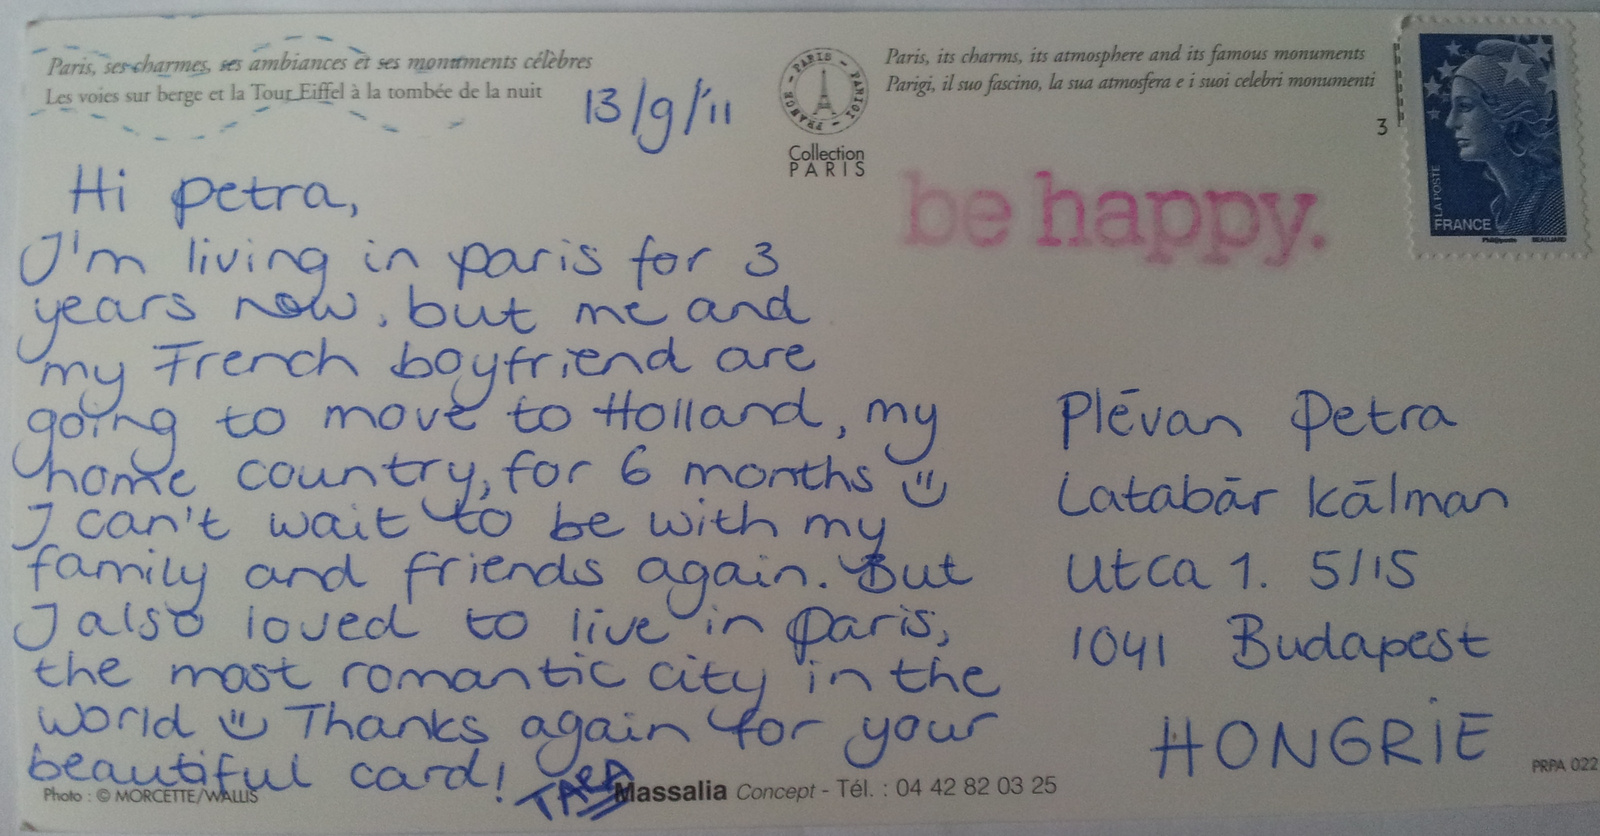 Paris, ses charmes, ses ambiances et ses monuments célèbres
Les voies sur berge et la Tour Eiffel à la tombée de la nuit
13/9/'11
PARIS - PARIGI - FRANCE
Collection
PARIS
Paris, its charms, its atmosphere and its famous monuments
Parigi, il suo fascino, la sua atmosfera e i suoi celebri monumenti
3
LA POSTE
FRANCE
be happy.
Hi petra,
I'm living in paris for 3
years now, but me and
my French boyfriend are
going to move to Holland, my
home country, for 6 months
I can't wait to be with my
family and friends again. But
I also loved to live in paris,
the most romantic city in the
world Thanks again for your
beautiful card!
Plēvan Petra
Latabār Kālman
Utca 1. 5/15
1041 Budapest
HONGRIE
PRPA 022
Photo : © MORCETTE/WALLIS
Massalia Concept - Tél. : 04 42 82 03 25